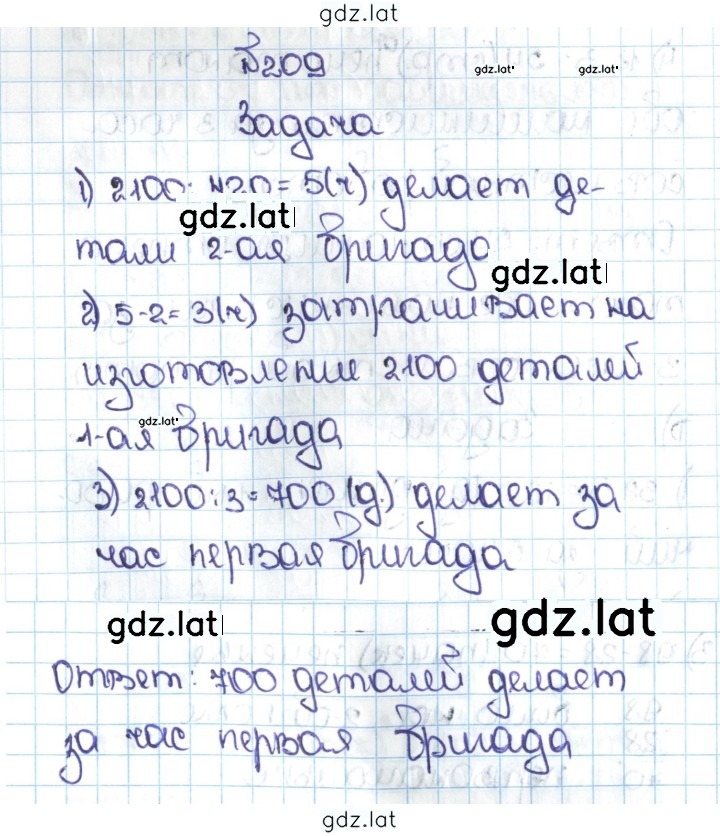 gdz.lat
№209
gdz.lat
gdz.lat
Задача
1) 2100: 420= 5(ч) делает де-
gdz.lat
тали 2-ая бригада
gdz.lat
2) 5-2= 3(ч) затрачивает на
изготовление 2100 деталей
gdz.lat
1-ая бригада
3) 2100:3=700 (д.) делает за
час первая бригада
gdz.lat
gdz.lat
Ответ: 700 деталей делает
за час первая бригада
gdz.lat